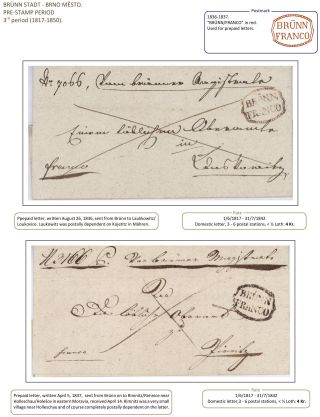 BRÜNN STADT - BRNO MĚSTO.
PRE-STAMP PERIOD
3rd period (1817-1850).
Postmark
1836-1837.
"BRÜNN/FRANCO" in red.
Used for prepaid letters.
BRÜNN
FRANCO
Nr. 7066, Vom brünner Magistrate
BRÜNN
FRANCO
Einem löblichen Oberamte
in
franco
Taxis
Prepaid letter, written August 26, 1836, sent from Brünn to Laukowitz/
Loukovice. Laukowitz was postally dependent on Kojetitz in Mähren.
1/6/1817 - 31/7/1842
Domestic letter, 3 - 6 postal stations, < ½ Loth: 4 Kr.
Vom brünner Magistrate
BRÜNN
FRANCO
löbliche Oberamt
zu
franco
Prepaid letter, written April 5, 1837, sent from Brünn to Rimnitz/Rimnice near
Holleschau/Holešov in eastern Moravia, received April 14. Rimnitz was a very small
village near Holleschau and of course completely postally dependent on the latter.
1/6/1817 - 31/7/1842
Domestic letter, 3 - 6 postal stations, < ½ Loth: 4 Kr.